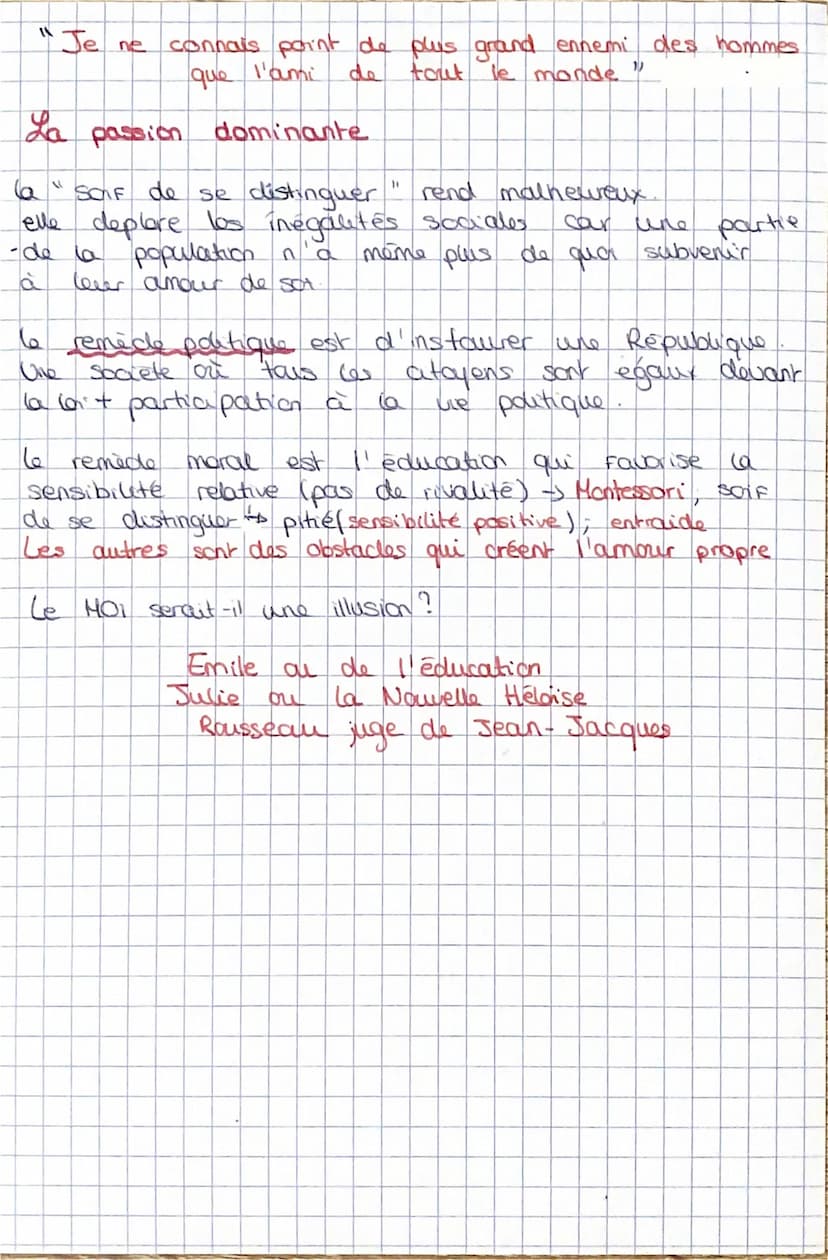 "Je ne connais point de plus grand ennemi des hommes
que l'ami de tout le monde"
La passion dominante
la "soif de se distinguer" rend malheureux.
elle deplore les inégalités sociales car une partie
-de la population n'a même plus de quoi subvenir
à leur amour de soi.
le remède politique est d'instaurer une République.
Une societe où tous les citoyens sont égaux devant
la loi + participation à la vie politique.
le remède moral est l'éducation qui favorise la
sensibilité relative (pas de rivalité) → Montessori, soif
de se distinguer ↳ pitié (sensibilité positive); entraide
Les autres sont des obstacles qui créent l'amour propre
Le MOI serait-il une illusion?
Emile ou de l'éducation
Julie ou la Nouvelle Héloïse
Rousseau juge de Jean-Jacques